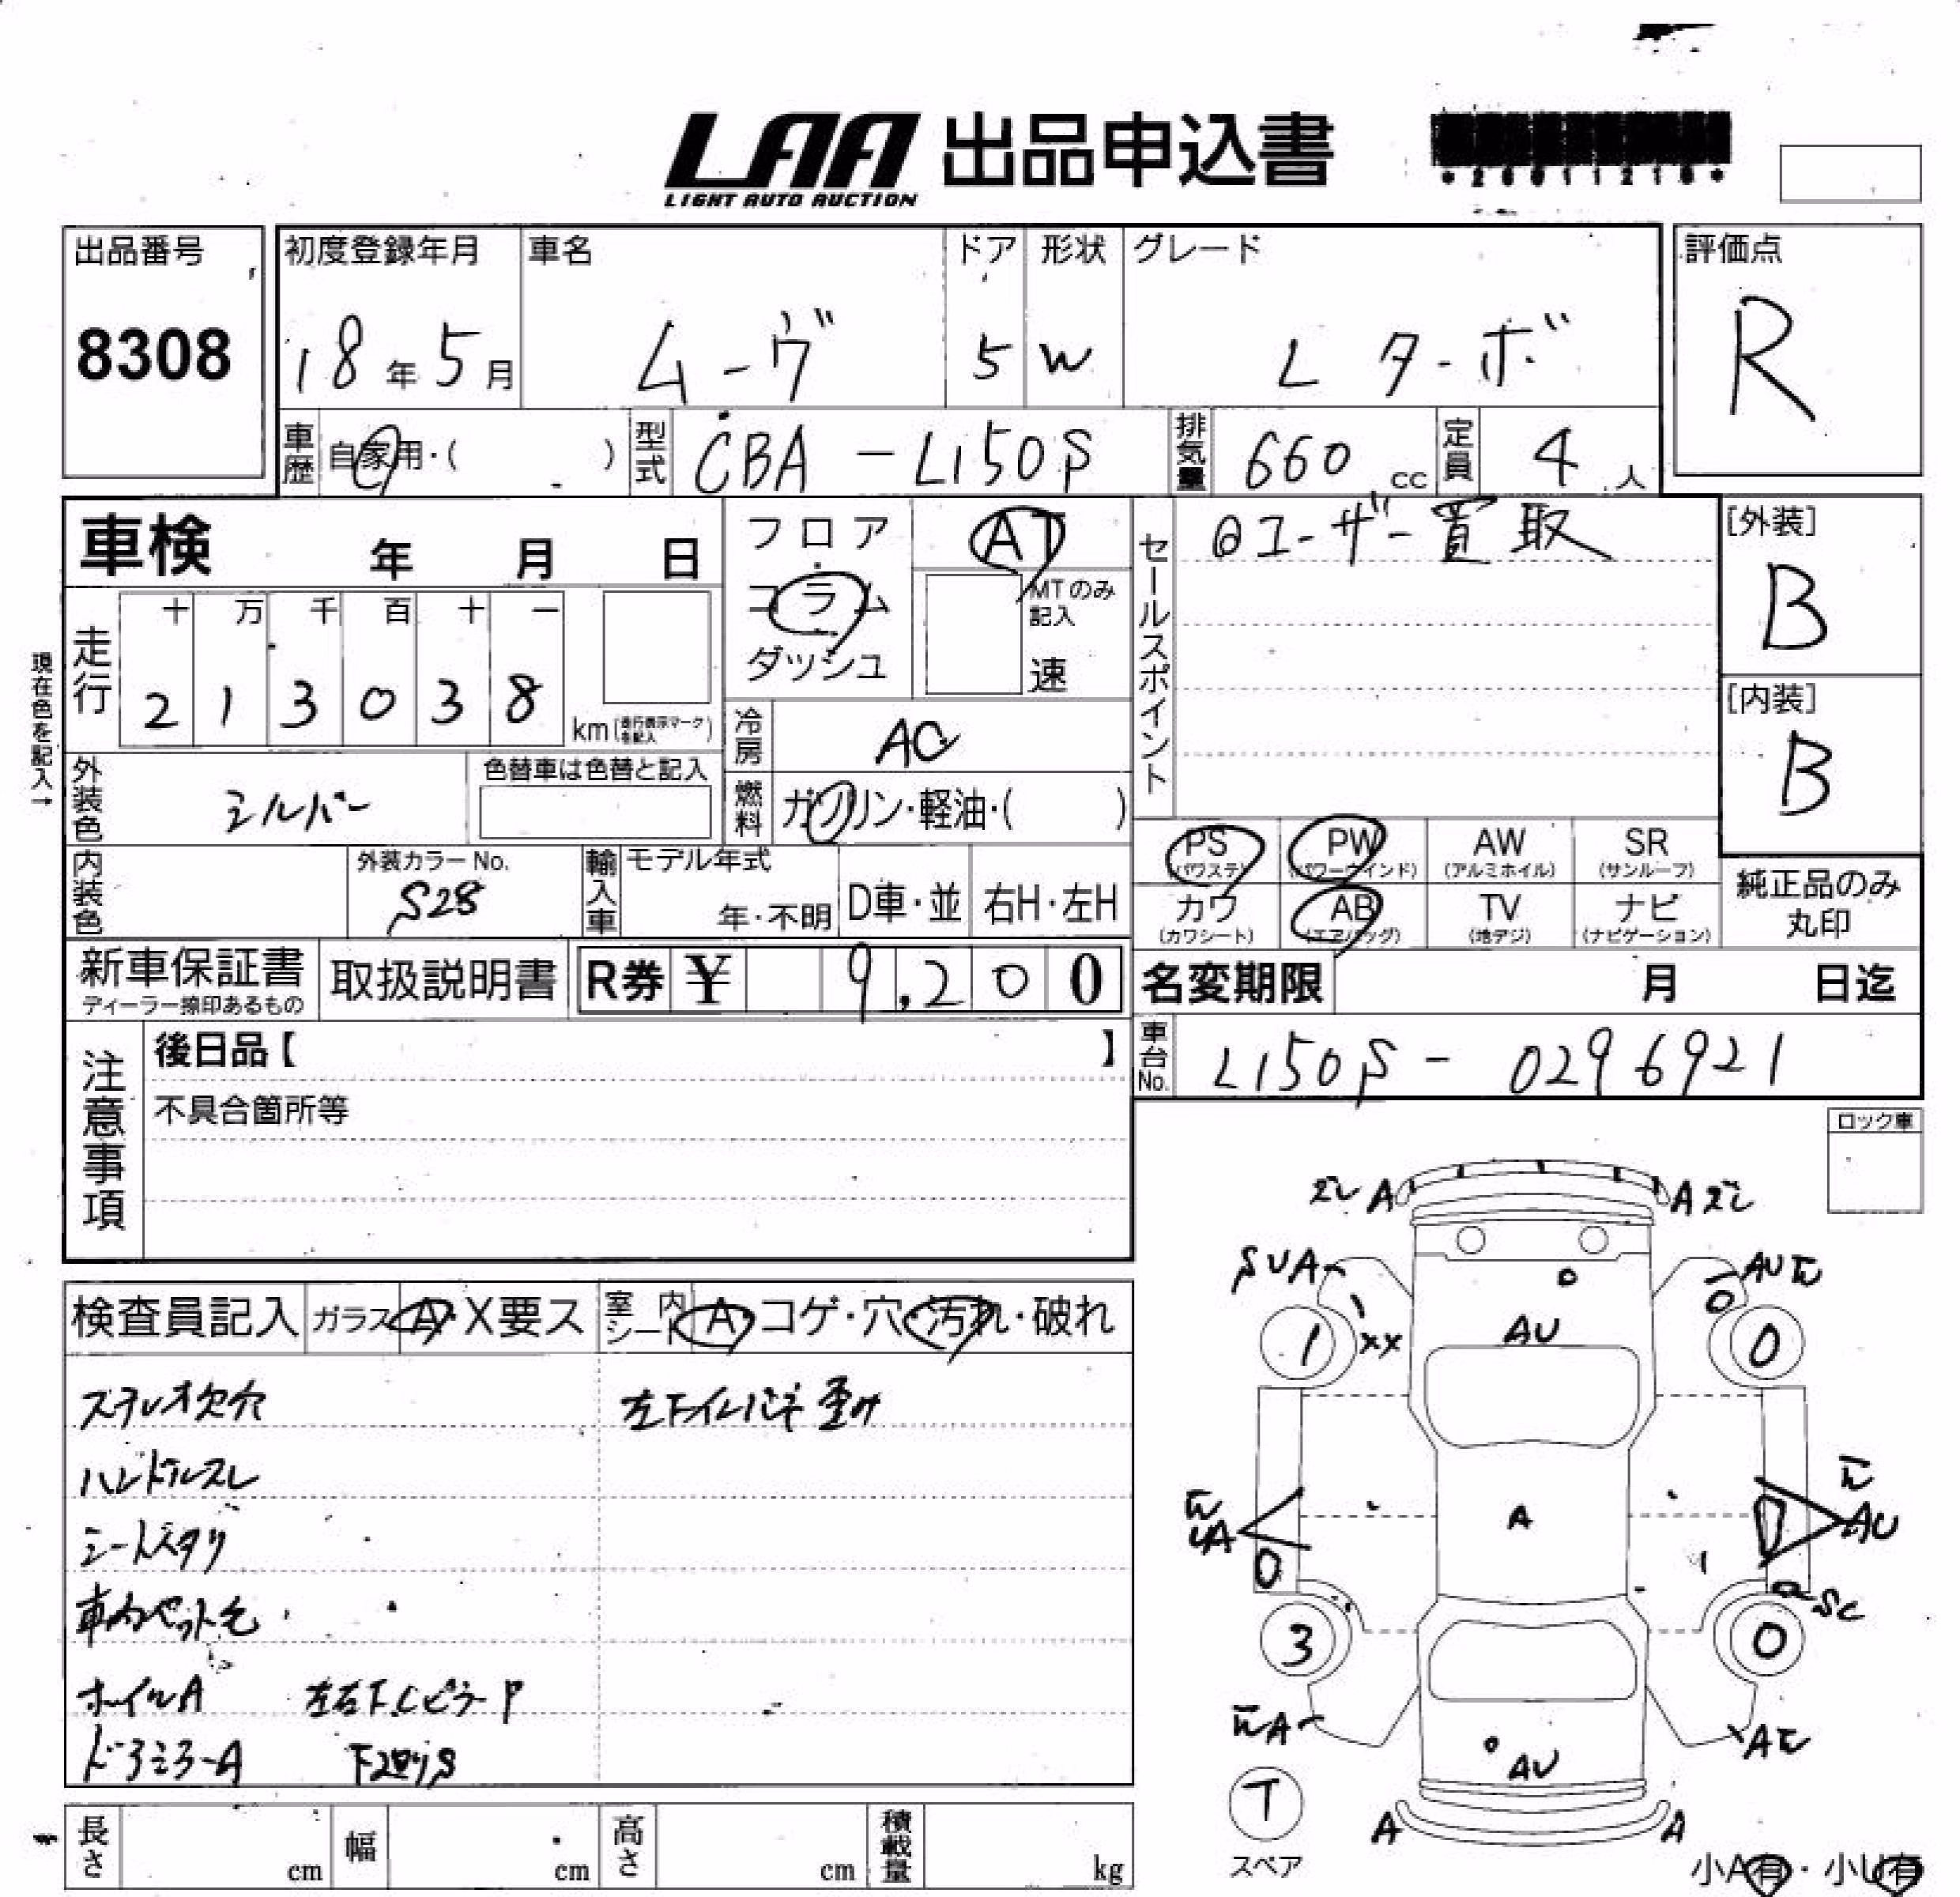 LAA 出品申込書
LIGHT AUTO AUCTION
出品番号
8308
初度登録年月
18年5月
車名
ムーヴ
ドア
5
形状
W
グレード
L ターボ
評価点
R
車歴 自家用・( )
型式 CBA-L150S
排気量 660 cc
定員 4 人
車検 年 月 日
フロア・コラム
ダッシュ
AT
MTのみ記入
速
セールスポイント
◎ユーザー買取
[外装]
B
[内装]
B
現在色を記入→
走行
十 万 千 百 十 一
2 1 3 0 3 8
km(走行表示マークを記入)
冷房 AC
燃料 ガソリン・軽油・( )
外装色 シルバー
色替車は色替と記入
内装色
外装カラーNo.
S28
輸入車 モデル年式
年・不明
D車・並
右H・左H
PS (パワステ)
PW (パワーウインド)
AW (アルミホイル)
SR (サンルーフ)
カワ (カワシート)
AB (エアバッグ)
TV (地デジ)
ナビ (ナビゲーション)
純正品のみ
丸印
新車保証書
ディーラー捺印あるもの
取扱説明書
R券 ¥ 9,200
名変期限 月 日迄
注意事項
後日品【 】
不具合箇所等
車台No. L150S-0296921
ロック車
検査員記入
ガラス A・X要ス
室内シート A・コゲ・穴・汚れ・破れ
ステレオ欠穴
左下インパネ歪み
ハンドルスレ
シートヘタリ
車内ペット毛
ホイルA
左右下Cピラー P
ドアミラーA
下廻りS
ズレ A
A ズレ
SUA
AU
XX
1
0
AU
A
UA
AU
SC
3
0
A
A
AU
T
スペア
A
A
長さ cm
幅 cm
高さ cm
積載量 kg
小A有・小U有